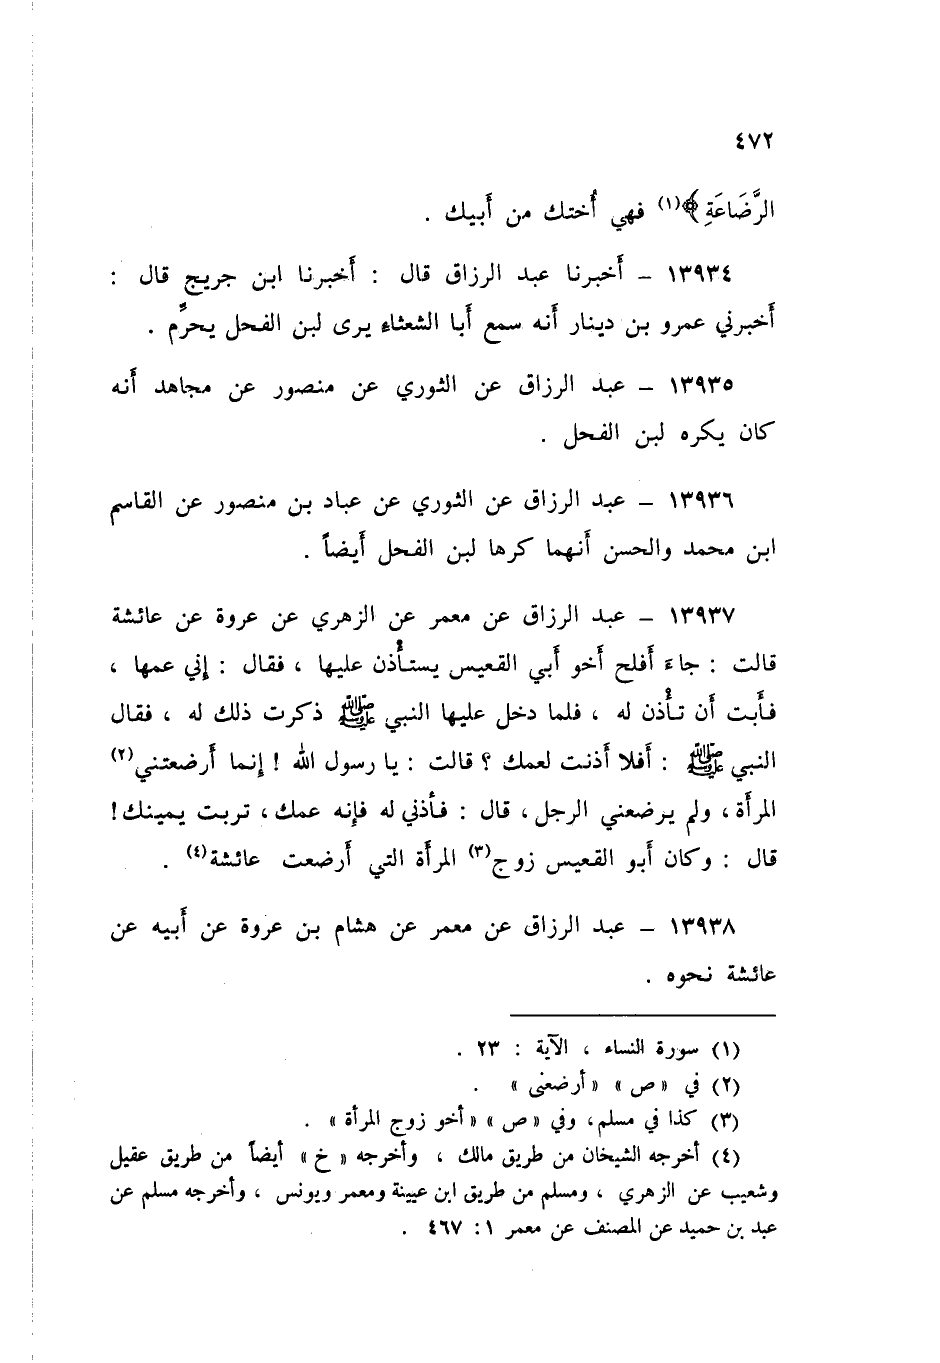 ٤٧٢
الرَّضَاعَةِ﴾(١) فهي أُختك من أَبيك .
١٣٩٣٤ – أَخبرنا عبد الرزاق قال : أَخبرنا ابن جريج قال :
أَخبرني عمرو بن دينار أَنه سمع أَبا الشعثاء يرى لبن الفحل يحرِّم .
١٣٩٣٥ – عبد الرزاق عن الثوري عن منصور عن مجاهد أَنه
كان يكره لبن الفحل .
١٣٩٣٦ – عبد الرزاق عن الثوري عن عباد بن منصور عن القاسم
ابن محمد والحسن أَنهما كرها لبن الفحل أَيضاً .
١٣٩٣٧ – عبد الرزاق عن معمر عن الزهري عن عروة عن عائشة
قالت : جاءَ أَفلح أَخو أَبي القعيس يستأْذن عليها ، فقال : إِني عمها ،
فأَبت أَن تأْذن له ، فلما دخل عليها النبي ﷺ ذكرت ذلك له ، فقال
النبي ﷺ : أَفلا أَذنت لعمك ؟ قالت : يا رسول الله ! إِنما أَرضعتني(٢)
المرأَة ، ولم يرضعني الرجل ، قال : فأْذني له فإِنه عمك ، تربت يمينك !
قال : وكان أَبو القعيس زوج(٣) المرأَة التي أَرضعت عائشة(٤) .
١٣٩٣٨ – عبد الرزاق عن معمر عن هشام بن عروة عن أَبيه عن
عائشة نحوه .
(١) سورة النساء ، الآية : ٢٣ .
(٢) في « ص » « أرضعنى » .
(٣) كذا في مسلم، وفي « ص » « أخو زوج المرأة » .
(٤) أخرجه الشيخان من طريق مالك ، وأخرجه « خ » أيضاً من طريق عقيل
وشعيب عن الزهري ، ومسلم من طريق ابن عيينة ومعمر ويونس ، وأخرجه مسلم عن
عبد بن حميد عن المصنف عن معمر ١ : ٤٦٧ .